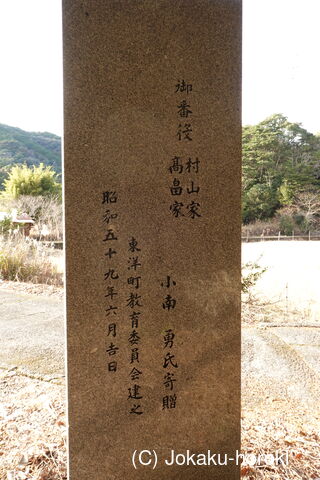 御番役
村山家
髙畠家
小南 勇氏寄贈
東洋町教育委員会建之
昭和五十九年六月吉日
(C) Jokaku-horoki